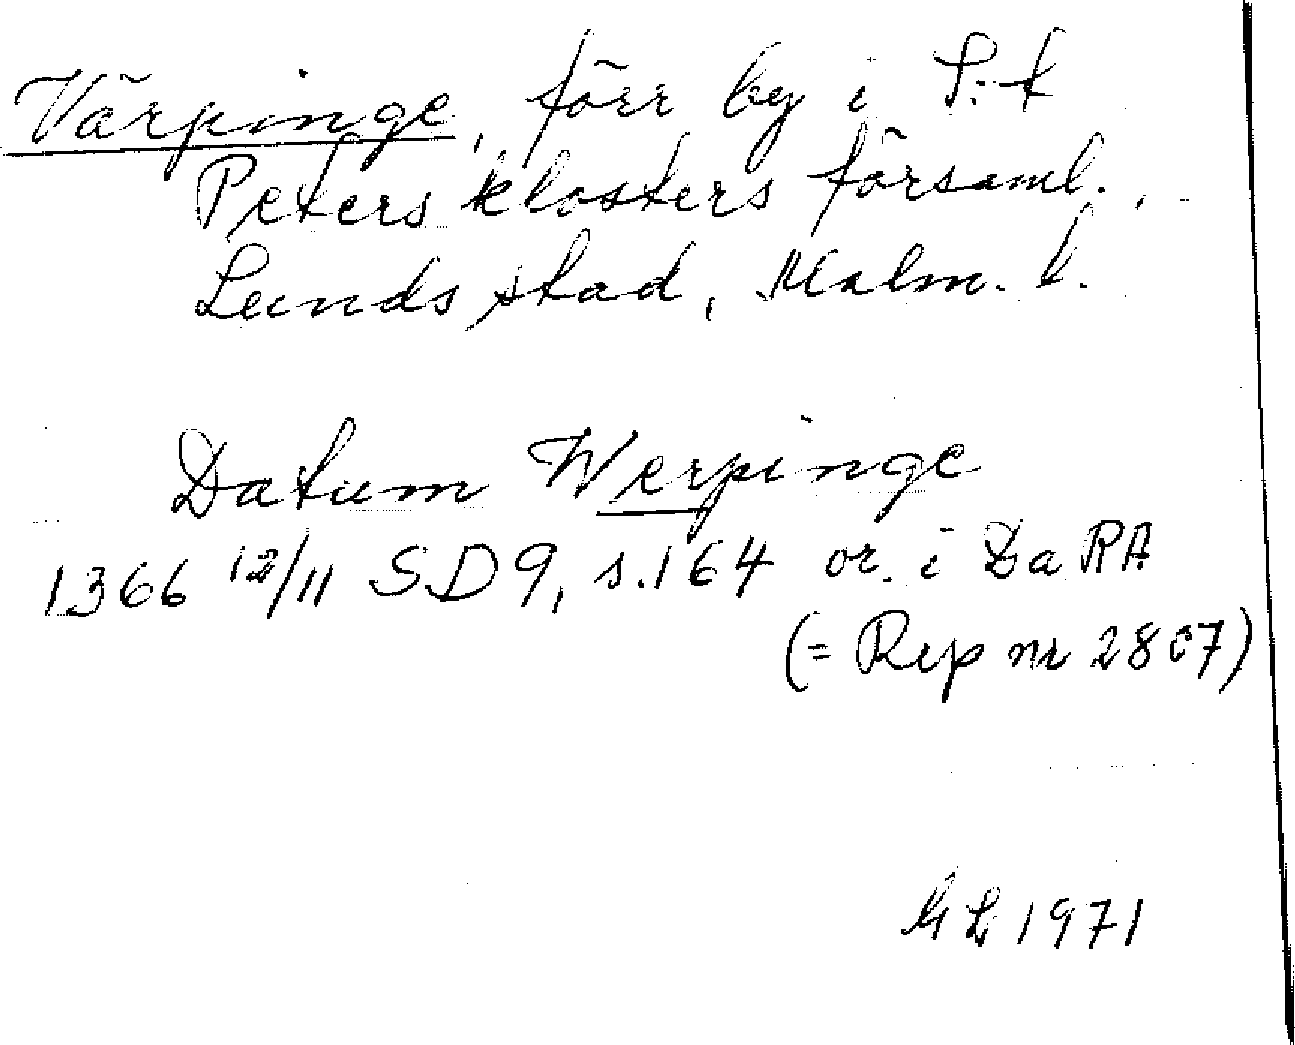 Värpinge, förr by i S:t
Peters klosters församl.,
Lunds stad, Malm. l.
Datum Werpinge
1366 12/11 SD 9, s.164 or. i Da RA
(= Rep nr 2807)
GL 1971